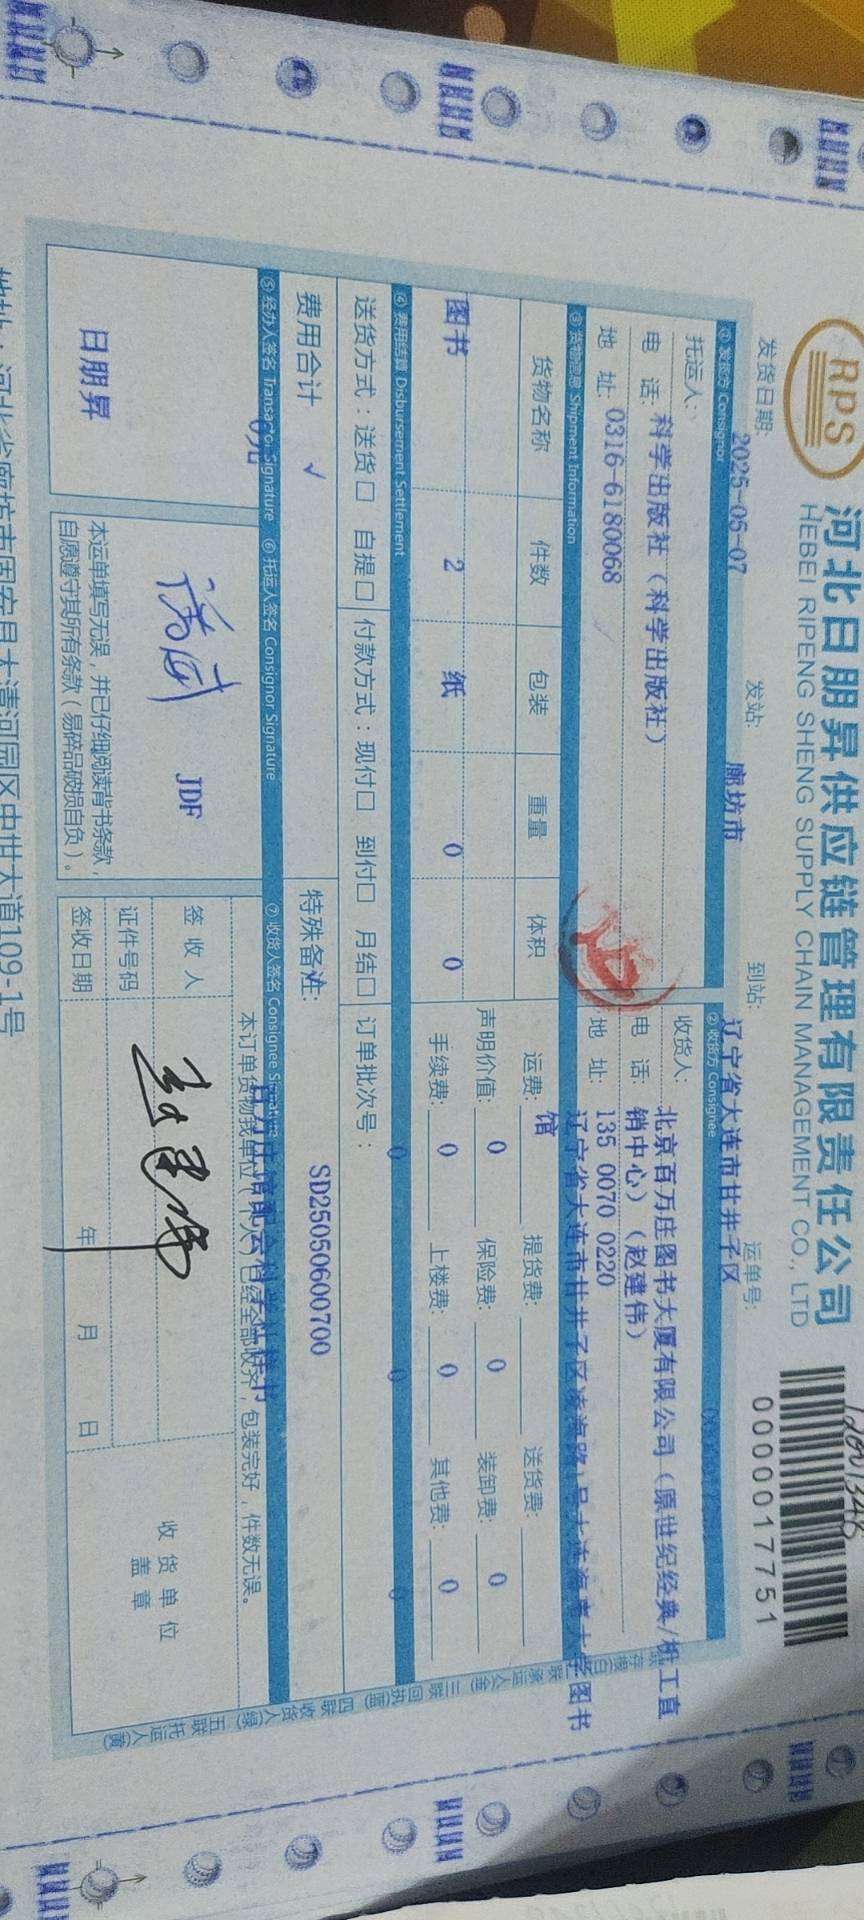 RPS
河北日朋昇供应链管理有限责任公司
HEBEI RIPENG SHENG SUPPLY CHAIN MANAGEMENT CO., LTD
0000017751
发货日期: 2025-05-07 发站: 廊坊市 到站: 辽宁省大连市甘井子区 运单号:
① 发货方 Consignor ② 收货方 Consignee
托运人: 科学出版社（科学出版社） 收货人: 北京百万庄图书大厦有限公司（原世纪经典/桩工直销中心）（赵建伟）
电 话: 0316-6180068 电 话: 135 0070 0220
地 址: 地 址: 辽宁省大连市甘井子区凌海路1号大连海事大学图书馆
③ 货物信息 Shipment Information
货物名称 件数 包装 重量 体积 运费: 提货费: 送货费:
声明价值: 0 保险费: 0 装卸费: 0
图书 2 纸 0 0 手续费: 0 上楼费: 0 其他费: 0
④ 费用结算 Disbursement Settlement 0 0 0
送货方式：送货□ 自提□ 付款方式：现付□ 到付□ 月结□ 订单批次号：
费用合计 √ 特殊备注: √ SD25050600700
0元
⑤ 经办人签名 Transactor Signature ⑥ 托运人签名 Consignor Signature ⑦ 收货人签名 Consignee Signature
本订单货物我单位（本人）已经全部收齐，包装完好，件数无误。
日朋昇
JDF
签 收 人
证件号码
签收日期 年 月 日
收 货 单 位
盖 章
本运单填写无误，并已仔细阅读背书条款，
自愿遵守其所有条款（易碎品破损自负）。
地址：河北省廊坊市固安县大清河园区中世大道109-1号